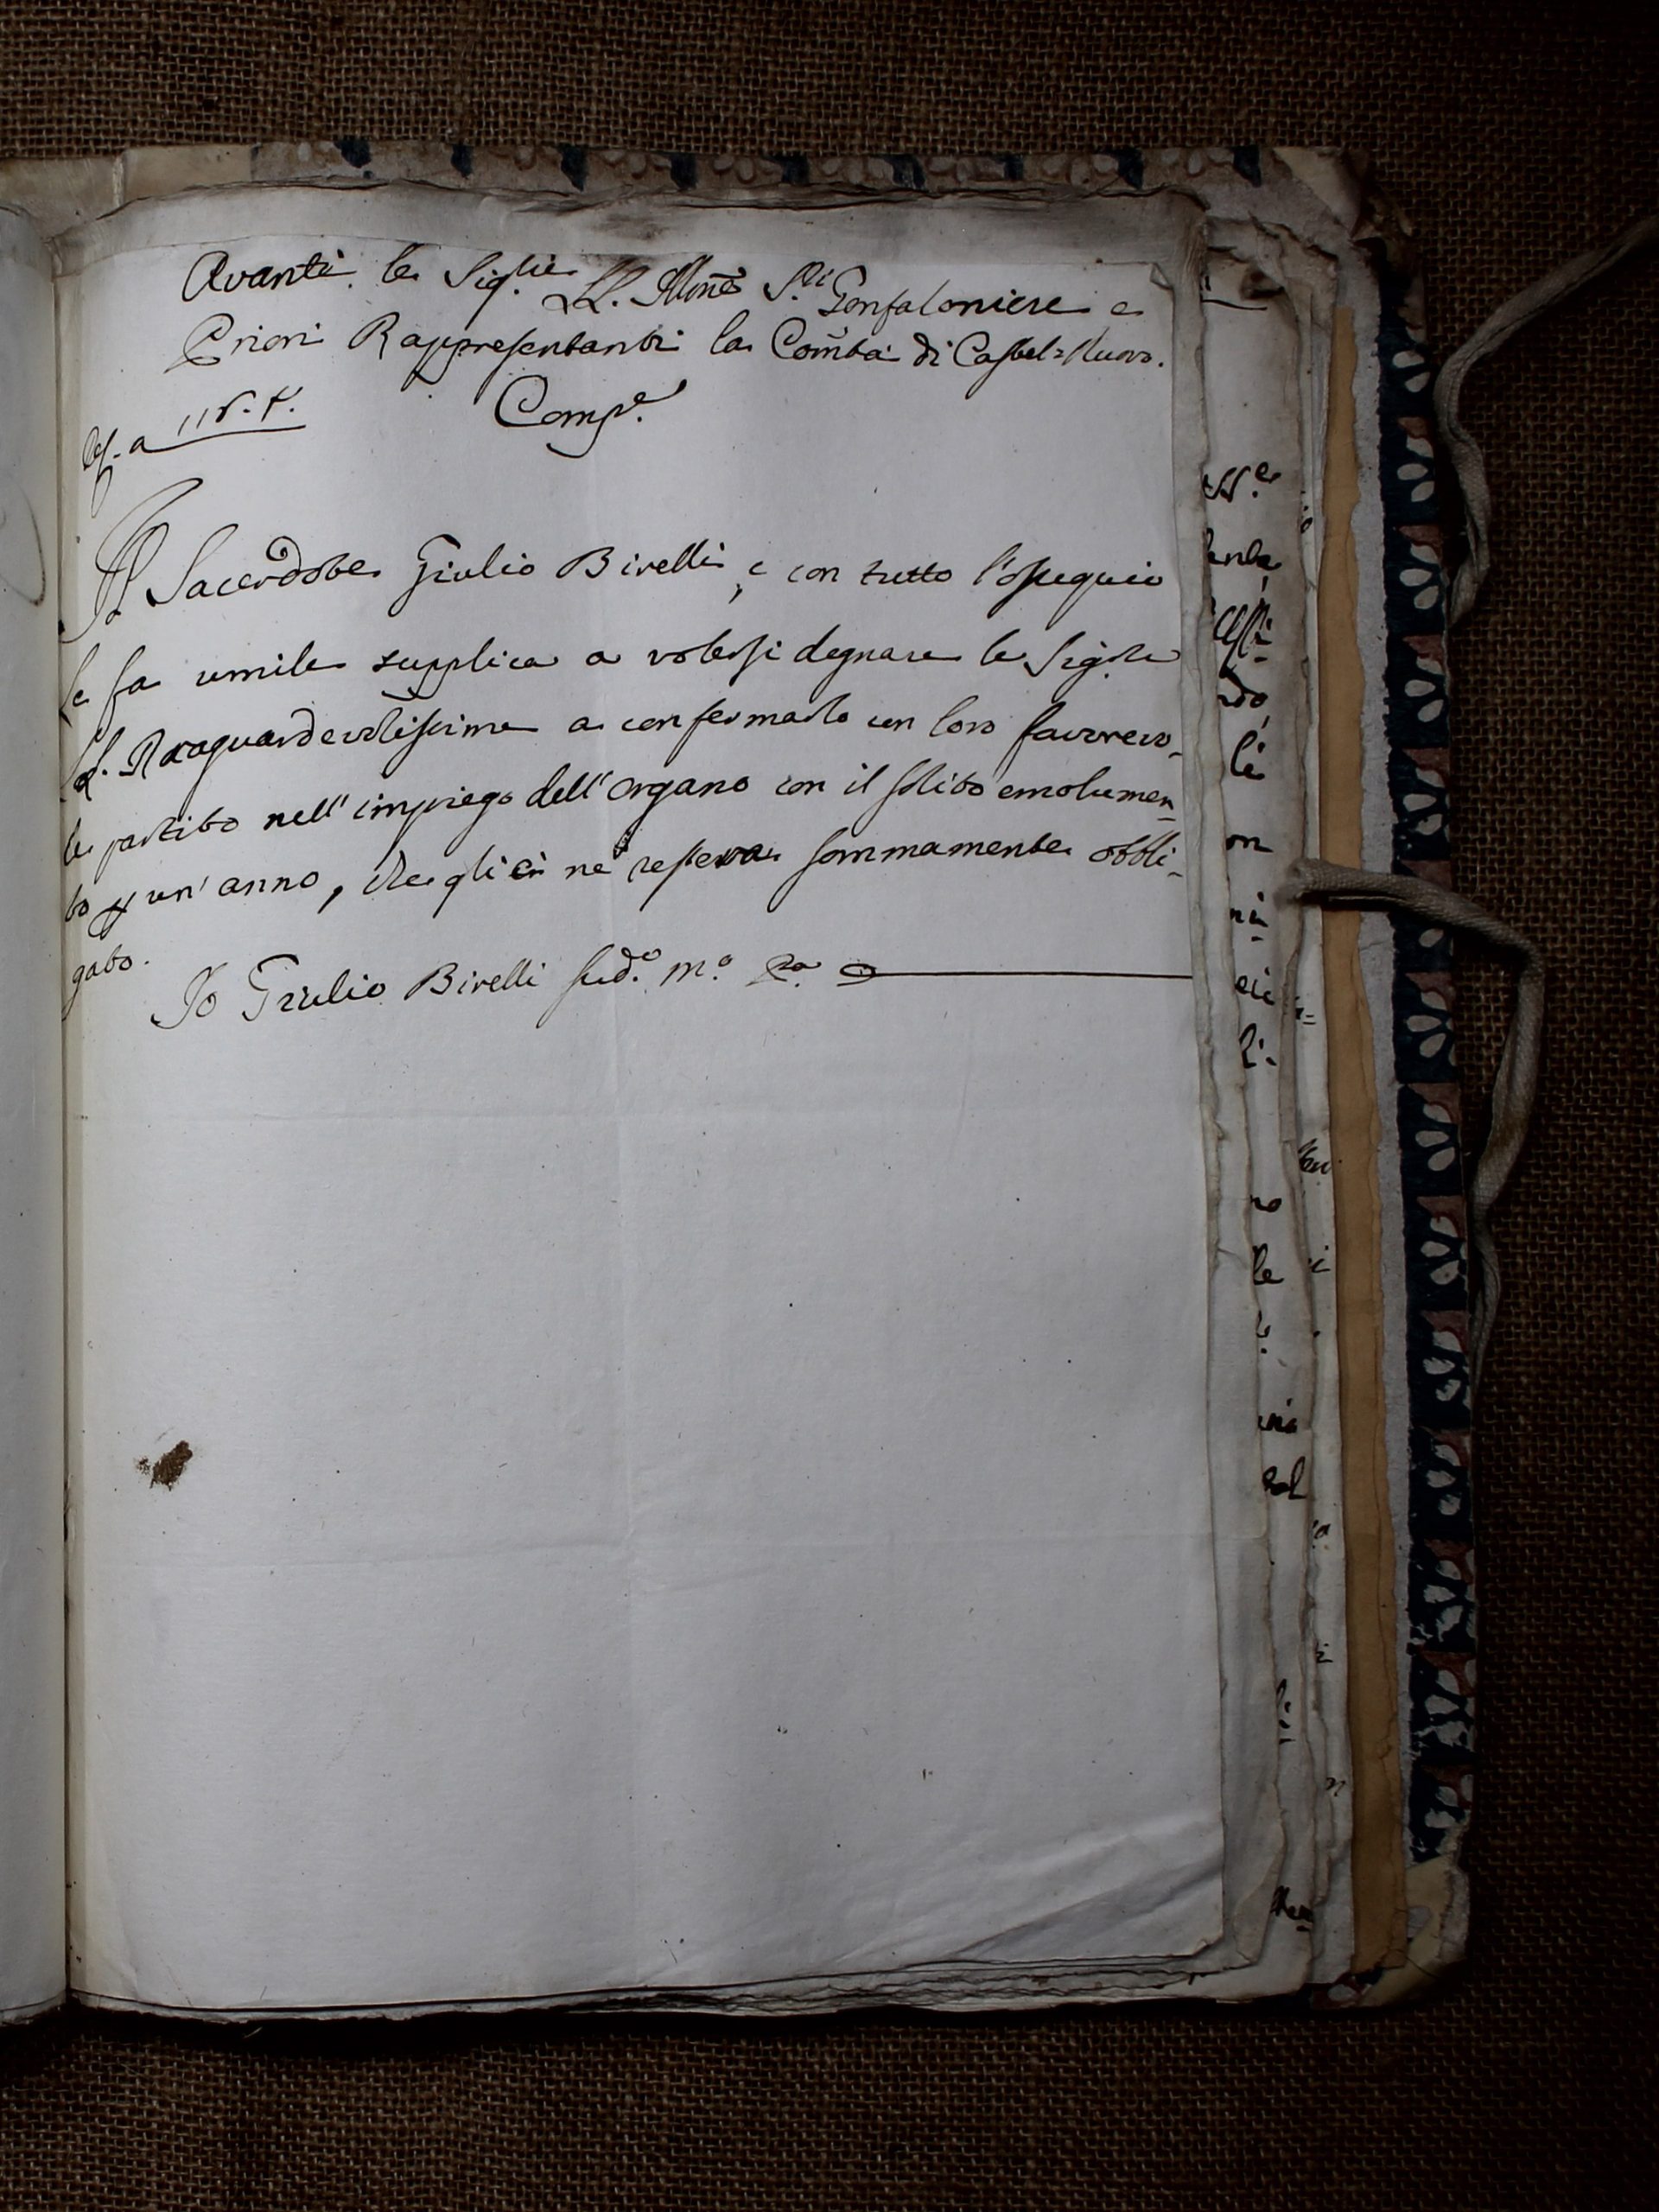 Avanti le Sig.rie LL. Illme S.ri Gonfaloniere e
Priori Rappresentanti la Comtà di Castel=Nuovo.
Comp.e
a 115. t.
Il Sacerdote Giulio Birelli, e con tutto l'ossequio
le fa umile supplica a volersi degnare le Sig.rie
LL. Raguardevolissime a confermarlo con loro favorevo-
le partito nell'impiego dell'Organo con il solito emolumen-
to p un'anno, che gli ne resterà sommamente obbli-
gato.
Io Giulio Birelli sud.o m.o p.a